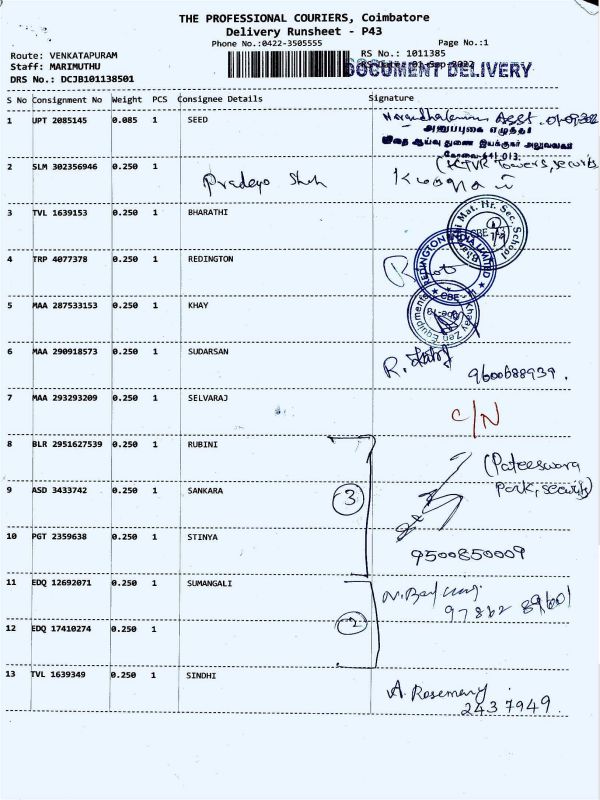 THE PROFESSIONAL COURIERS, Coimbatore
Delivery Runsheet - P43
Phone No.:0422-3505555 Page No.:1
Route: VENKATAPURAM RS No.: 1011385
Staff: MARIMUTHU
DRS No.: DCJB101138501 DOCUMENT DELIVERY
S No Consignment No Weight PCS Consignee Details Signature
1 UPT 2085145 0.085 1 SEED
அனுப்புகை எழுத்தர்
விதை ஆய்வு துணை இயக்குநர் அலுவலகம்
கோவை-641 013.
2 SLM 302356946 0.250 1
3 TVL 1639153 0.250 1 BHARATHI
Mat. Hr. Sec. School
4 TRP 4077378 0.250 1 REDINGTON
REDINGTON INDIA LIMITED
CBE
5 MAA 287533153 0.250 1 KHAY
Khaay Zen Equipments
6 MAA 290918573 0.250 1 SUDARSAN
9600688939.
7 MAA 293293209 0.250 1 SELVARAJ
C/N
8 BLR 2951627539 0.250 1 RUBINI
(Pateeswara
Park, security)
9 ASD 3433742 0.250 1 SANKARA
3
10 PGT 2359638 0.250 1 STINYA
9500850009
11 EDQ 12692071 0.250 1 SUMANGALI
12 EDQ 17410274 0.250 1
2
13 TVL 1639349 0.250 1 SINDHI
A. Rosemary.
2437949.